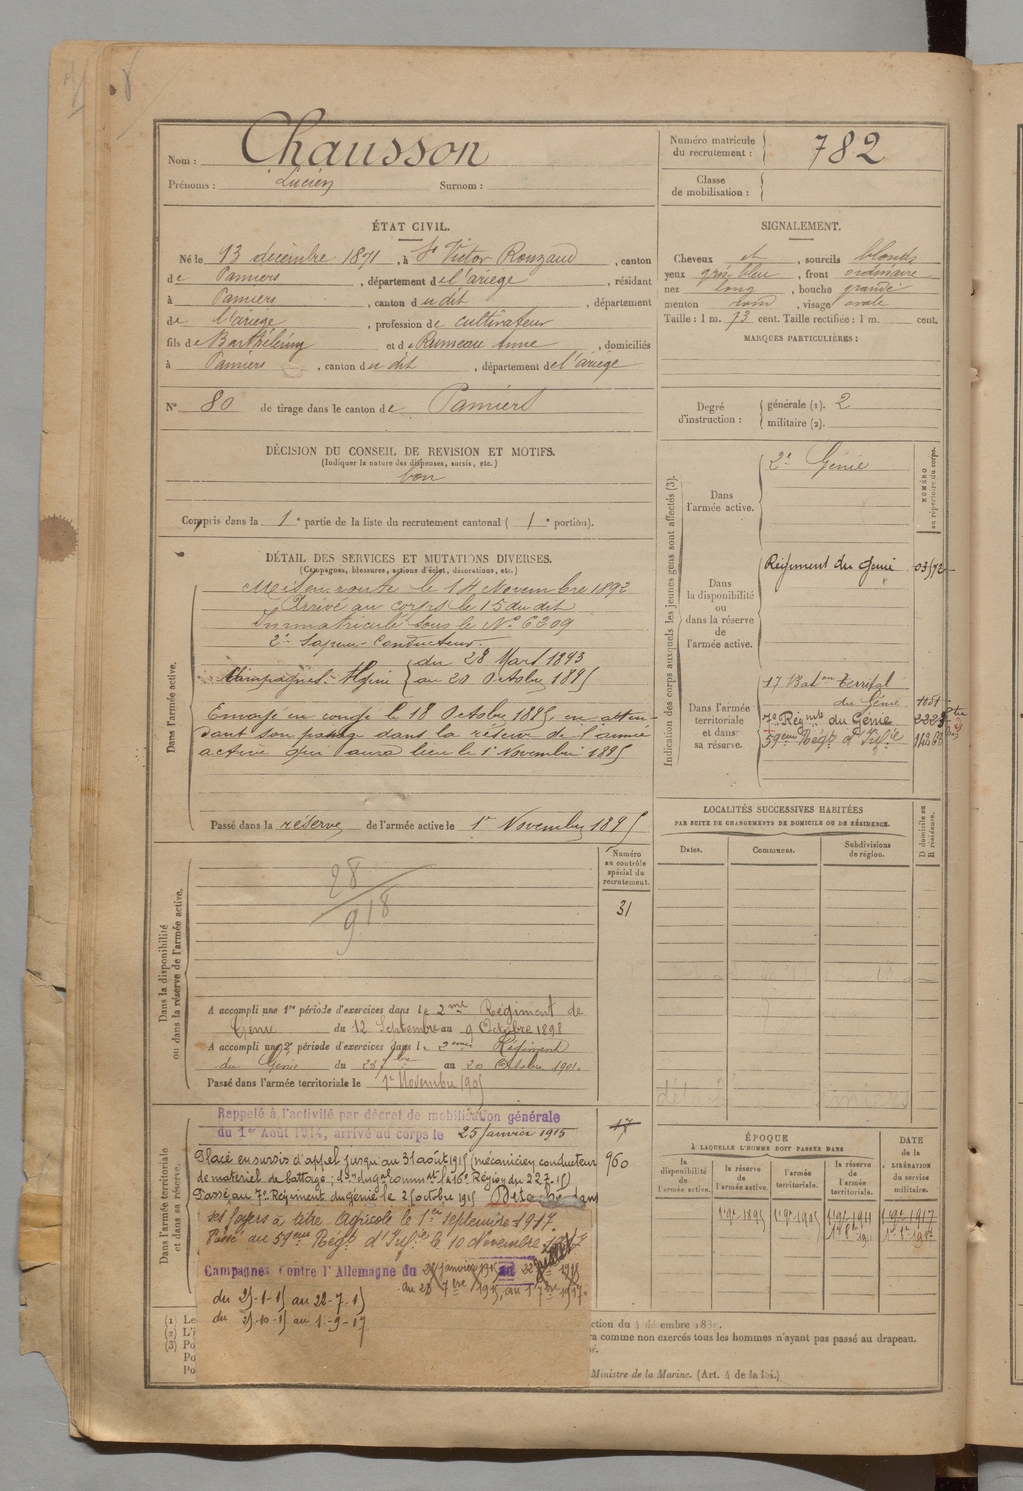 Nom : Chausson
Prénoms : Lucien Surnom :
Numéro matricule du recrutement : 782
Classe de mobilisation :
ÉTAT CIVIL.
Né le 13 décembre 1871, à St Victor Rouzaud, canton
de Pamiers, département de l'ariège, résidant
à Pamiers, canton du dit, département
de l'ariège, profession de cultivateur
fils de Barthélémy et de Rumeau Anne, domiciliés
à Pamiers, canton du dit, département de l'ariège
N° 80 de tirage dans le canton de Pamiers
SIGNALEMENT.
Cheveux et, sourcils blonds
yeux gris bleu, front ordinaire
nez long, bouche grande
menton rond, visage ovale
Taille : 1 m. 73 cent. Taille rectifiée : 1 m. cent.
MARQUES PARTICULIÈRES :
Degré d'instruction : générale (1). 2
militaire (2).
DÉCISION DU CONSEIL DE REVISION ET MOTIFS.
(Indiquer la nature des dispenses, sursis, etc.)
bon
Compris dans la 1e partie de la liste du recrutement cantonal ( 1e portion).
DÉTAIL DES SERVICES ET MUTATIONS DIVERSES.
(Campagnes, blessures, actions d'éclat, décorations, etc.)
Dans l'armée active.
Mis en route le 14 Novembre 1892
Arrivé au corps le 15 du dit
Immatriculé sous le N° 6309
2e Sapeur-Conducteur.
Campagnes : Algérie du 28 Mars 1893
au 20 Octobre 1895
Envoyé en congé le 18 Octobre 1895, en atten-
dant son passage dans la réserve de l'armée
active qui aura lieu le 1er Novembre 1895
Passé dans la réserve de l'armée active le 1er Novembre 1895
Indication des corps auxquels les jeunes gens sont affectés (3).
NUMÉRO au répertoire du corps.
Dans l'armée active.
2e Génie
Dans la disponibilité ou dans la réserve de l'armée active.
Régiment du Génie 03172
Dans l'armée territoriale et dans sa réserve.
17 Baton territal
du Génie 1051
7e Régmt du Génie 2223
59ème Régt d'Infie 14268
LOCALITÉS SUCCESSIVES HABITÉES
PAR SUITE DE CHANGEMENTS DE DOMICILE OU DE RÉSIDENCE.
Dates. Communes. Subdivisions de région. D domicile ou R résidence.
Dans la disponibilité ou dans la réserve de l'armée active.
Numéro au contrôle spécial du recrutement.
28
918
31
A accompli une 1re période d'exercices dans le 2me Régiment de
Génie du 12 Septembre au 9 Octobre 1898
A accompli une 2e période d'exercices dans le 2ème Régiment
du Génie du 23 7bre au 20 Octobre 1901.
Passé dans l'armée territoriale le 1er Novembre 1905
Dans l'armée territoriale et dans sa réserve.
Rappelé à l'activité par décret de mobilisation générale
du 1er Août 1914, arrivé au corps le 25 Janvier 1915
17
Placé en sursis d'appel jusqu'au 31 août 1915 (mécanicien conducteur 960
de matériel de battage; don du gal commt la 16e Région du 22-7-15)
Passé au 7e Régiment du génie le 25 octobre 1915 Détaché dans
ses foyers à titre Agricole le 1er septembre 1917.
Passé au 59ème Régt d'Infie le 10 Novembre 1917
Campagnes Contre l'Allemagne du 25 janvier 1915 au 22 juillet 1915
du 25 7bre 1915, au 1er 7bre 1917.
du 25-1-15 au 22-7-15
du 25-10-15 au 1-9-17
ÉPOQUE
À LAQUELLE L'HOMME DOIT PASSER DANS
DATE DE LA LIBÉRATION du service militaire.
la disponibilité de l'armée active. la réserve de l'armée active. l'armée territoriale. la réserve de l'armée territoriale.
1 9e 1895 1 9e 1905 1 9e 1911 1 9e 1917
(1) Le
(2) L'i
(3) Po
Po
Po
ction du 4 décembre 188
ra comme non exercés tous les hommes n'ayant pas passé au drapeau.
Ministre de la Marine. (Art. 4 de la loi.)